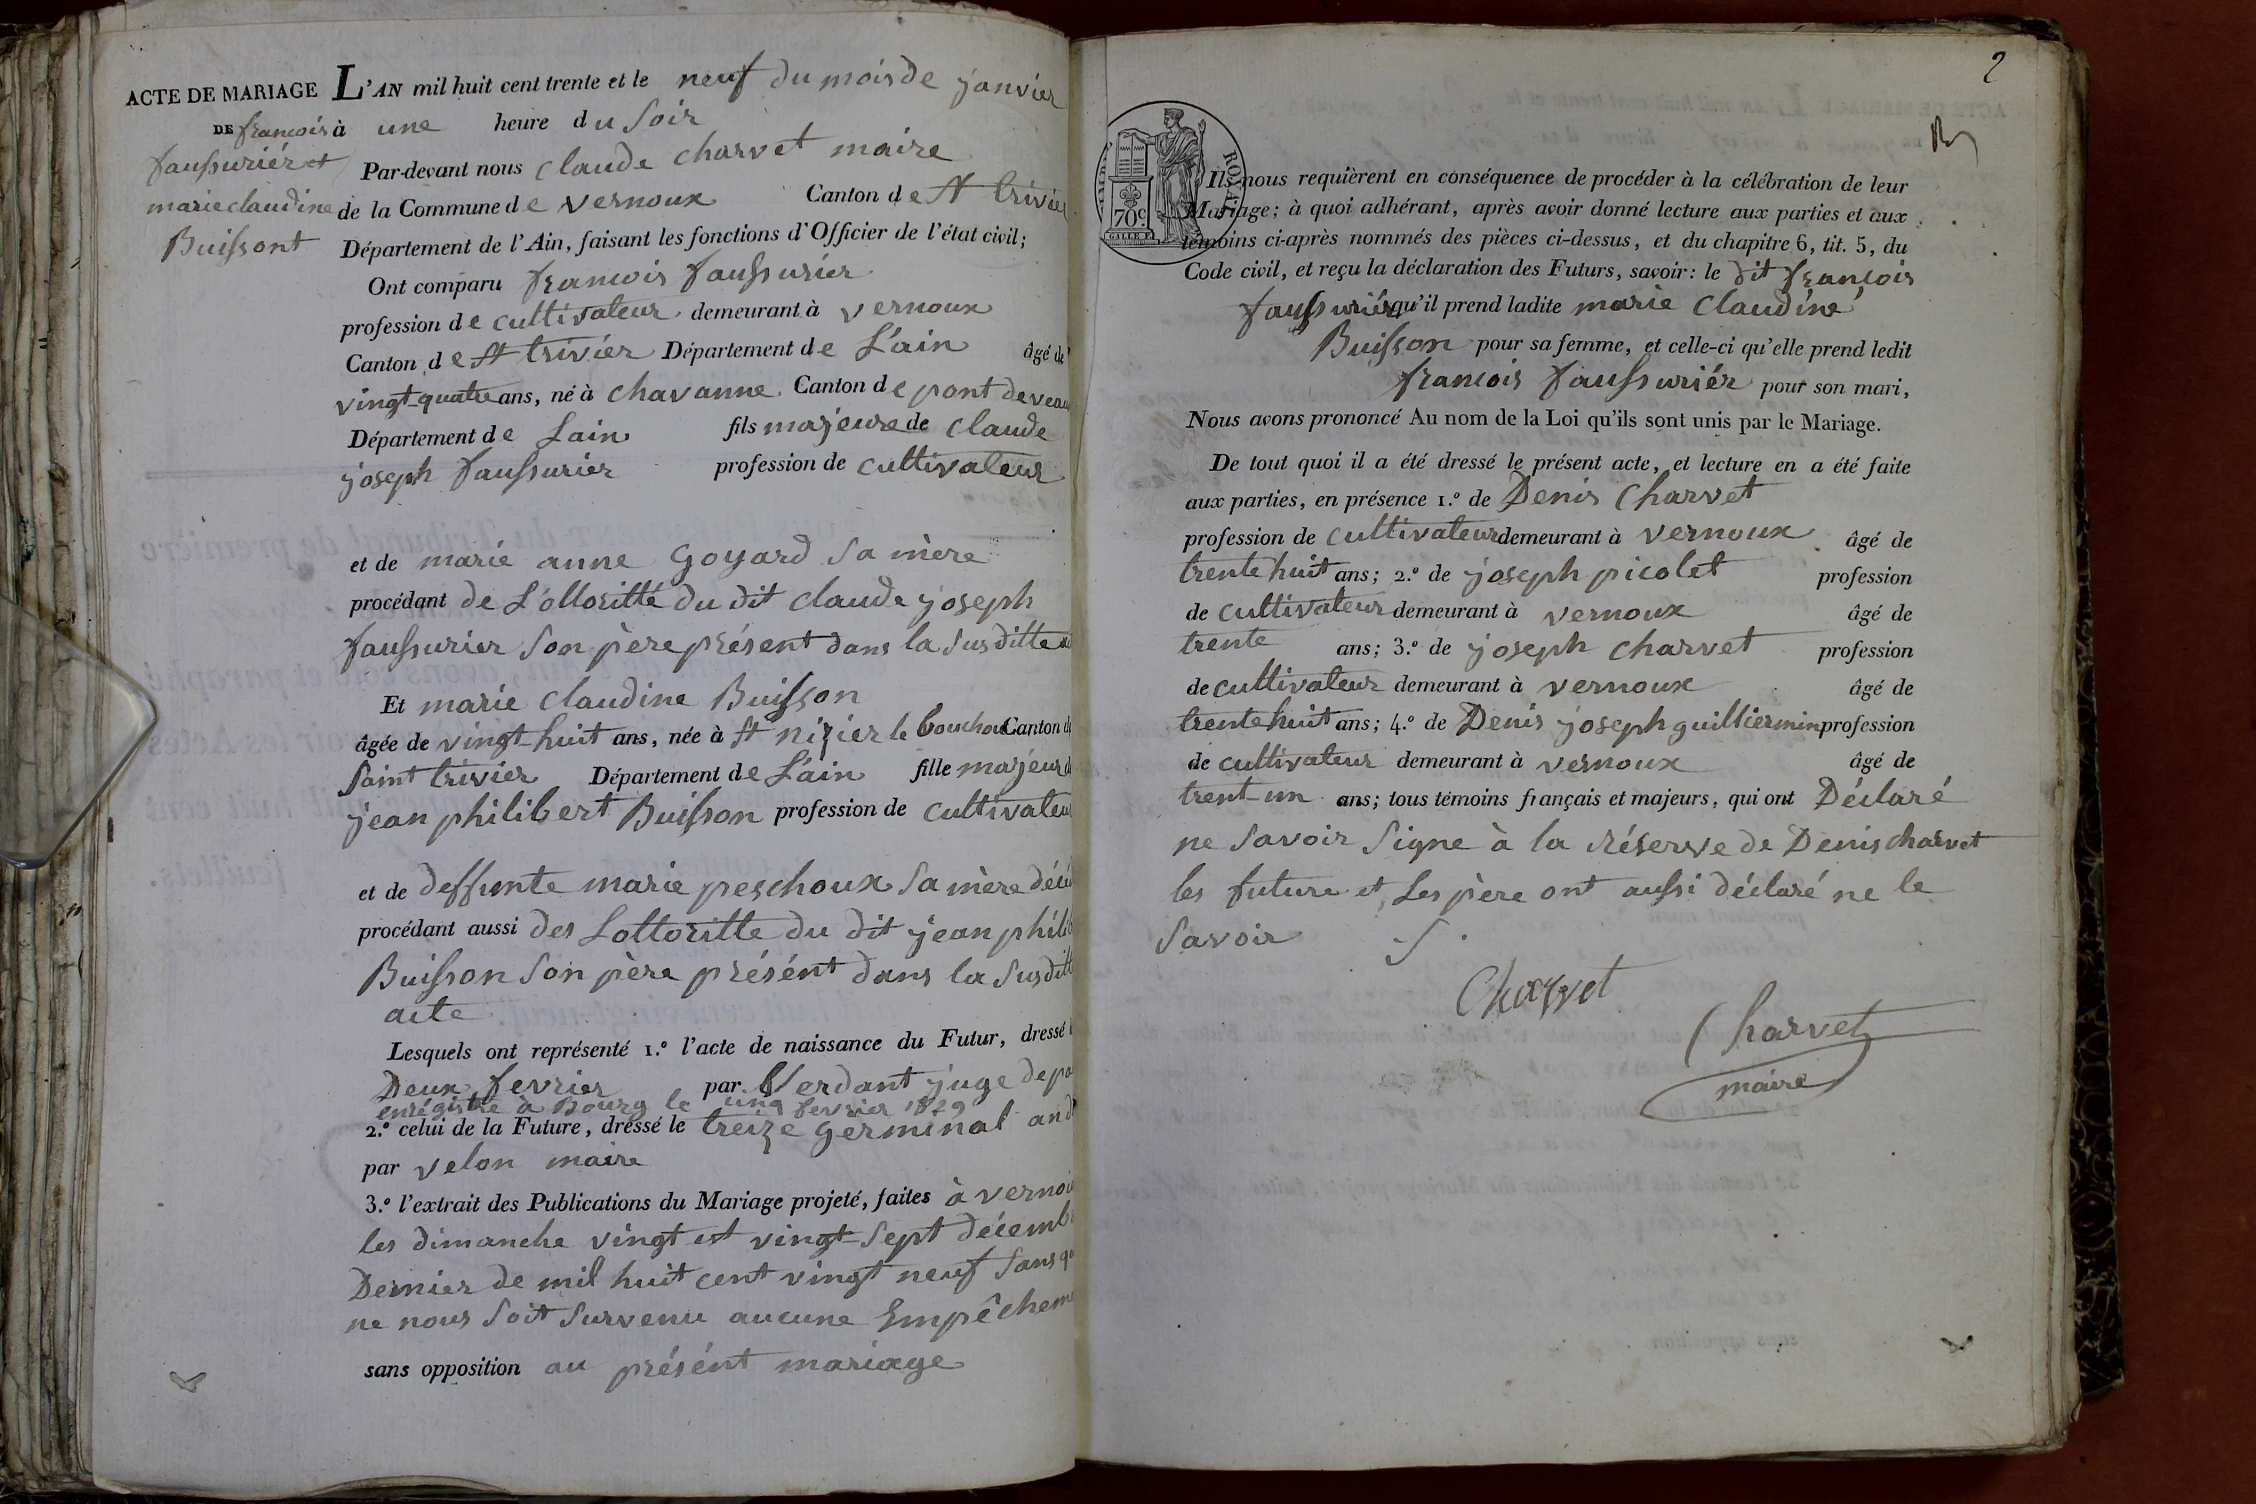 ACTE DE MARIAGE L'AN mil huit cent trente et le neuf du mois de janvier
DE francois à une heure du Soir
faussuriér et Par-devant nous claude charvet maire
marie claudine de la Commune de vernoux Canton de St trivier
Buissont Département de l'Ain, faisant les fonctions d'Officier de l'état civil;
Ont comparu francois faussurier
profession de cultivateur demeurant à vernoux
Canton de St trivier Département de L'ain âgé de
vingt-quatre ans, né à chavanne Canton de pont de veau
Département de Lain fils majeure de claude
joseph faussurier profession de cultivateur
et de marie anne Goyard sa mère
procédant de L'ottoritté du dit claude joseph
faussurier Son père présent dans la Susditte
Et marie claudine Buisson
âgée de vingt-huit ans, née à St nizier le bouchou Canton de
Saint trivier Département de L'ain fille majeur
jean philibert Buisson profession de cultivateu
et de deffunte marie peschoux sa mère décé
procédant aussi des Lottoritte du dit jean philib
Buisson Son père présént dans la Susditt
acte
Lesquels ont représenté 1.º l'acte de naissance du Futur, dressé
Deux fevrier par Verdant juge de pa
enrégistré à Bourg le cinq fevrier 1829
2.º celui de la Future, dressé le treize germinal an
par velon maire
3.º l'extrait des Publications du Mariage projeté, faites à vernou
les dimanche vingt est vingt-Sept décemb
Dernier de mil huit cent vingt neuf Sans q
ne nous Soit Survenu aucune Empêchem
sans opposition au présént mariage
2
ROYAL
70c.
Ils nous requièrent en conséquence de procéder à la célébration de leur
Mariage; à quoi adhérant, après avoir donné lecture aux parties et aux
témoins ci-après nommés des pièces ci-dessus, et du chapitre 6, tit. 5, du
Code civil, et reçu la déclaration des Futurs, savoir: le dit francois
faussuriér qu'il prend ladite marie Claudine
Buisson pour sa femme, et celle-ci qu'elle prend ledit
francois faussuriér pour son mari,
Nous avons prononcé Au nom de la Loi qu'ils sont unis par le Mariage.
De tout quoi il a été dressé le présent acte, et lecture en a été faite
aux parties, en présence 1.º de Denis Charvet
profession de cultivateur demeurant à vernoux âgé de
trente huit ans; 2.º de joseph picolet profession
de cultivateur demeurant à vernoux âgé de
trente ans; 3.º de joseph charvet profession
de cultivateur demeurant à vernoux âgé de
trente huit ans; 4.º de Denis joseph guilliermin profession
de cultivateur demeurant à vernoux âgé de
trent-un ans; tous témoins français et majeurs, qui ont Déclaré
ne Savoir Signe à la réserve de Denis charvet
les future et Les père ont aussi déclaré ne le
Savoir
Charvet
Charvet
maire